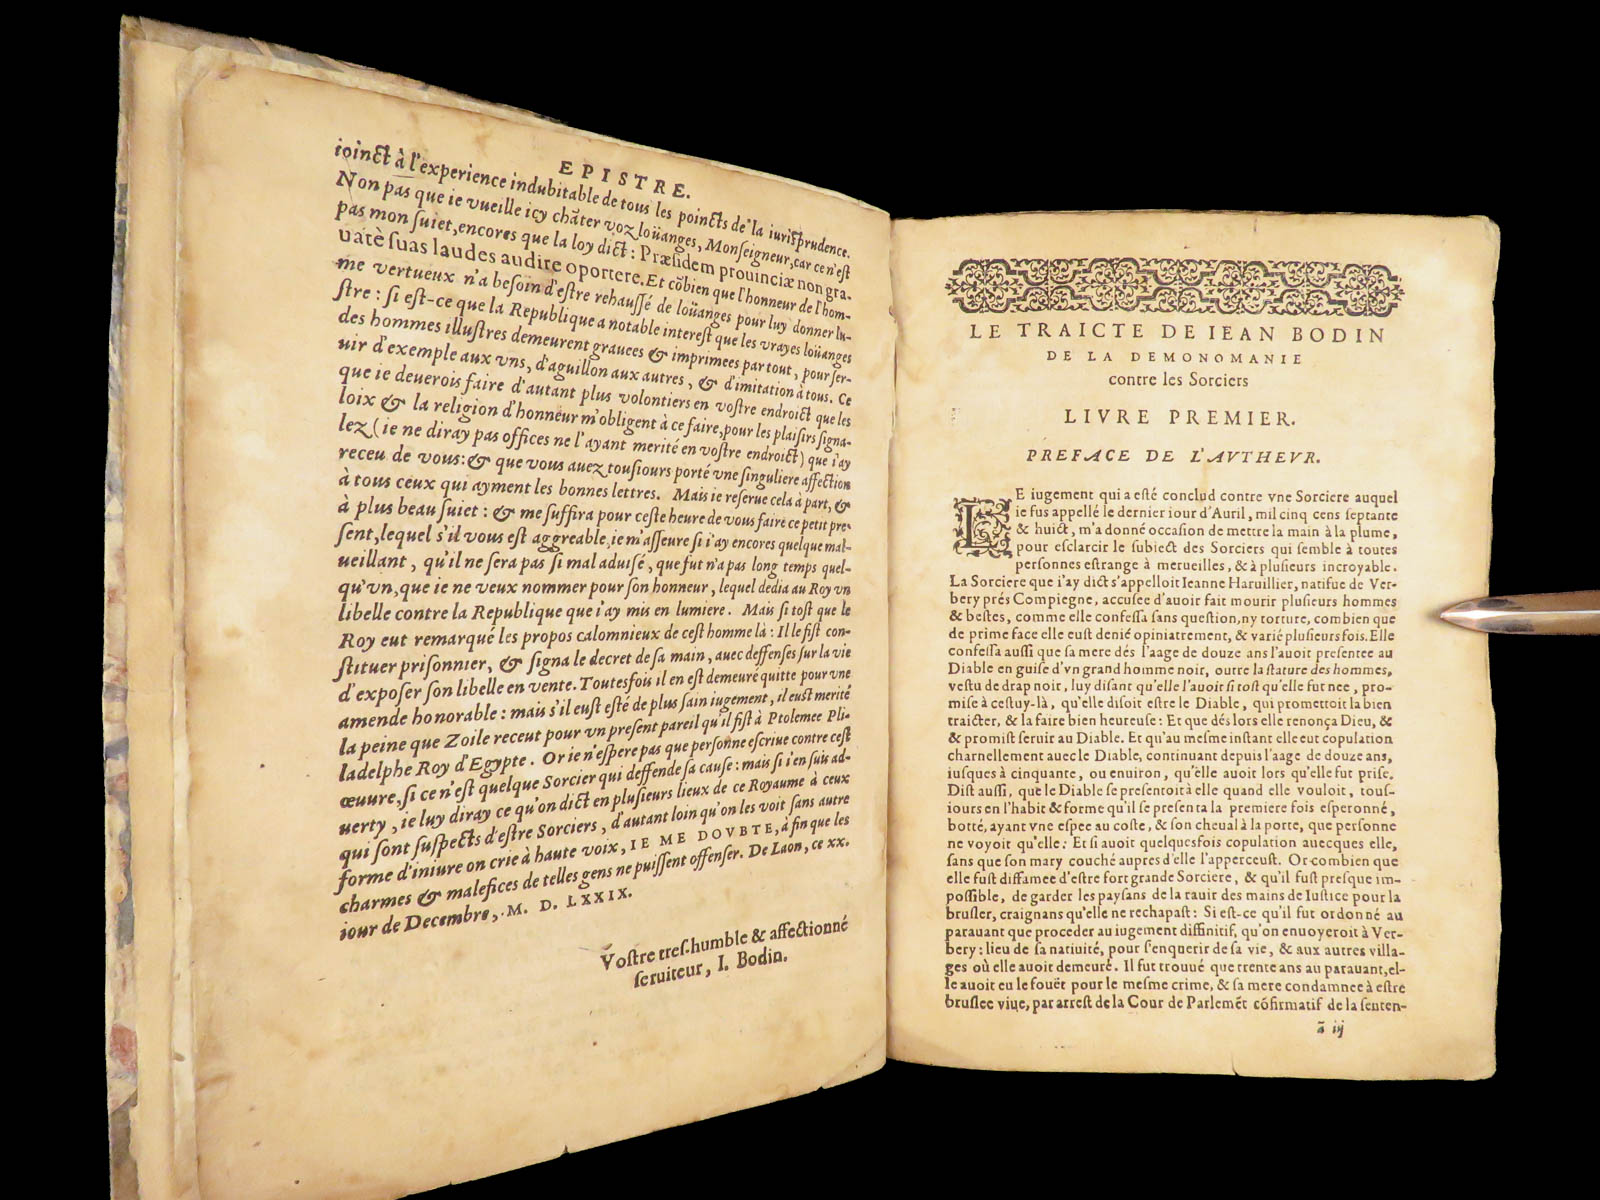 EPISTRE.
ioinct à l'experience indubitable de tous les poincts de la iurisprudence.
Non pas que ie vueille icy chãter voz loüanges, Monseigneur, car ce n'est
pas mon suiet, encores que la loy dict : Præsidem prouinciæ non gra-
uatè suas laudes audire oportere. Et cõbien que l'honneur de l'hom-
me vertueux n'a besoin d'estre rehaussé de loüanges pour luy donner lu-
stre : si est-ce que la Republique a notable interest que les vrayes loüanges
des hommes illustres demeurent grauees & imprimees par tout, pour ser-
uir d'exemple aux vns, d'aguillon aux autres, & d'imitation à tous. Ce
que ie deuerois faire d'autant plus volontiers en vostre endroict que les
loix & la religion d'honneur m'obligent à ce faire, pour les plaisirs signa-
lez (ie ne diray pas offices ne l'ayant merité en vostre endroict) que i'ay
receu de vous: & que vous auez tousiours porté vne singuliere affection
à tous ceux qui ayment les bonnes lettres. Mais ie reserue cela à part, &
à plus beau suiet : & me suffira pour ceste heure de vous faire ce petit pre-
sent, lequel s'il vous est aggreable, ie m'asseure si i'ay encores quelque mal-
ueillant, qu'il ne sera pas si mal aduisé, que fut n'a pas long temps quel-
qu'vn, que ie ne veux nommer pour son honneur, lequel dedia au Roy vn
libelle contre la Republique que i'ay mis en lumiere. Mais si tost que le
Roy eut remarqué les propos calomnieux de cest homme là : Il le fist con-
stituer prisonnier, & signa le decret de sa main, auec deffenses sur la vie
d'exposer son libelle en vente. Toutesfois il en est demeuré quitte pour vne
amende honorable : mais s'il eust esté de plus sain iugement, il eust merité
la peine que Zoile receut pour vn present pareil qu'il fist à Ptolemee Pli-
ladelphe Roy d'Egypte. Or ie n'espere pas que personne escriue contre cest
œuure, si ce n'est quelque Sorcier qui deffende sa cause : mais si i'en suis ad-
uerty, ie luy diray ce qu'on dict en plusieurs lieux de ce Royaume à ceux
qui sont suspects d'estre Sorciers, d'autant loin qu'on les voit sans autre
forme d'iniure on crie à haute voix, IE ME DOVBTE, à fin que les
charmes & malefices de telles gens ne puissent offenser. De Laon, ce xx.
iour de Decembre, M. D. LXXIX.
Vostre tres-humble & affectionné
seruiteur, I. Bodin.
LE TRAICTE DE IEAN BODIN
DE LA DEMONOMANIE
contre les Sorciers
LIVRE PREMIER.
PREFACE DE L'AVTHEVR.
LE iugement qui a esté conclud contre vne Sorciere auquel
ie fus appellé le dernier iour d'Auril, mil cinq cens septante
& huict, m'a donné occasion de mettre la main à la plume,
pour esclarcir le subiect des Sorciers qui semble à toutes
personnes estrange à merueilles, & à plusieurs incroyable.
La Sorciere que i'ay dict s'appelloit Ieanne Haruillier, natifue de Ver-
bery prés Compiegne, accusee d'auoir fait mourir plusieurs hommes
& bestes, comme elle confessa sans question, ny torture, combien que
de prime face elle eust denié opiniatrement, & varié plusieurs fois. Elle
confessa aussi que sa mere dés l'aage de douze ans l'auoit presentee au
Diable en guise d'vn grand homme noir, outre la stature des hommes,
vestu de drap noir, luy disant qu'elle l'auoit si tost qu'elle fut nee, pro-
mise à cestuy-là, qu'elle disoit estre le Diable, qui promettoit la bien
traicter, & la faire bien heureuse : Et que dés lors elle renonça Dieu, &
& promist seruir au Diable. Et qu'au mesme instant elle eut copulation
charnellement auec le Diable, continuant depuis l'aage de douze ans,
iusques à cinquante, ou enuiron, qu'elle auoit lors qu'elle fut prise.
Dist aussi, que le Diable se presentoit à elle quand elle vouloit, tous-
iours en l'habit & forme qu'il se presenta la premiere fois esperonné,
botté, ayant vne espee au coste, & son cheual à la porte, que personne
ne voyoit qu'elle : Et si auoit quelquesfois copulation auecques elle,
sans que son mary couché aupres d'elle l'apperceust. Or combien que
elle fust diffamee d'estre fort grande Sorciere, & qu'il fust presque im-
possible, de garder les paysans de la rauir des mains de Iustice pour la
brusler, craignans qu'elle ne rechapast : Si est-ce qu'il fut ordonné au
parauant que proceder au iugement diffinitif, qu'on enuoyeroit à Ver-
bery : lieu de sa natiuité, pour s'enquerir de sa vie, & aux autres villa-
ges où elle auoit demeuré. Il fut trouué que trente ans au parauant, el-
le auoit eu le fouët pour le mesme crime, & sa mere condamnee à estre
bruslee viue, par arrest de la Cour de Parlemẽt cõfirmatif de la senten-
ã iij